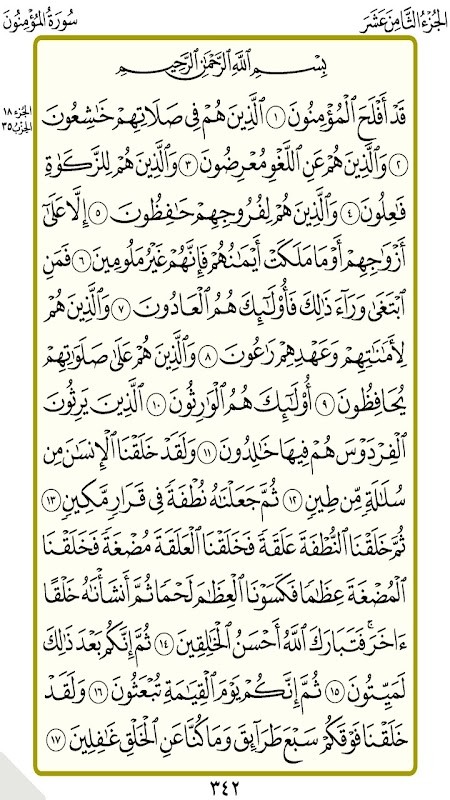 الجُزْءُ الثَّامِنَ عَشَرَ
سُورَةُ المُؤْمِنُونَ
بِسْمِ ٱللَّهِ ٱلرَّحْمَٰنِ ٱلرَّحِيمِ
الجزء ١٨
الحزب ٣٥
قَدْ أَفْلَحَ ٱلْمُؤْمِنُونَ ١ ٱلَّذِينَ هُمْ فِى صَلَاتِهِمْ خَٰشِعُونَ
٢ وَٱلَّذِينَ هُمْ عَنِ ٱللَّغْوِ مُعْرِضُونَ ٣ وَٱلَّذِينَ هُمْ لِلزَّكَوٰةِ
فَٰعِلُونَ ٤ وَٱلَّذِينَ هُمْ لِفُرُوجِهِمْ حَٰفِظُونَ ٥ إِلَّا عَلَىٰٓ
أَزْوَٰجِهِمْ أَوْ مَا مَلَكَتْ أَيْمَٰنُهُمْ فَإِنَّهُمْ غَيْرُ مَلُومِينَ ٦ فَمَنِ
ٱبْتَغَىٰ وَرَآءَ ذَٰلِكَ فَأُو۟لَٰٓئِكَ هُمُ ٱلْعَادُونَ ٧ وَٱلَّذِينَ هُمْ
لِأَمَٰنَٰتِهِمْ وَعَهْدِهِمْ رَٰعُونَ ٨ وَٱلَّذِينَ هُمْ عَلَىٰ صَلَوَٰتِهِمْ
يُحَافِظُونَ ٩ أُو۟لَٰٓئِكَ هُمُ ٱلْوَٰرِثُونَ ١٠ ٱلَّذِينَ يَرِثُونَ
ٱلْفِرْدَوْسَ هُمْ فِيهَا خَٰلِدُونَ ١١ وَلَقَدْ خَلَقْنَا ٱلْإِنسَٰنَ مِن
سُلَٰلَةٍ مِّن طِينٍ ١٢ ثُمَّ جَعَلْنَٰهُ نُطْفَةً فِى قَرَارٍ مَّكِينٍ ١٣
ثُمَّ خَلَقْنَا ٱلنُّطْفَةَ عَلَقَةً فَخَلَقْنَا ٱلْعَلَقَةَ مُضْغَةً فَخَلَقْنَا
ٱلْمُضْغَةَ عِظَٰمًا فَكَسَوْنَا ٱلْعِظَٰمَ لَحْمًا ثُمَّ أَنشَأْنَٰهُ خَلْقًا
ءَاخَرَ ۚ فَتَبَارَكَ ٱللَّهُ أَحْسَنُ ٱلْخَٰلِقِينَ ١٤ ثُمَّ إِنَّكُم بَعْدَ ذَٰلِكَ
لَمَيِّتُونَ ١٥ ثُمَّ إِنَّكُمْ يَوْمَ ٱلْقِيَٰمَةِ تُبْعَثُونَ ١٦ وَلَقَدْ
خَلَقْنَا فَوْقَكُمْ سَبْعَ طَرَآئِقَ وَمَا كُنَّا عَنِ ٱلْخَلْقِ غَٰفِلِينَ ١٧
٣٤٢